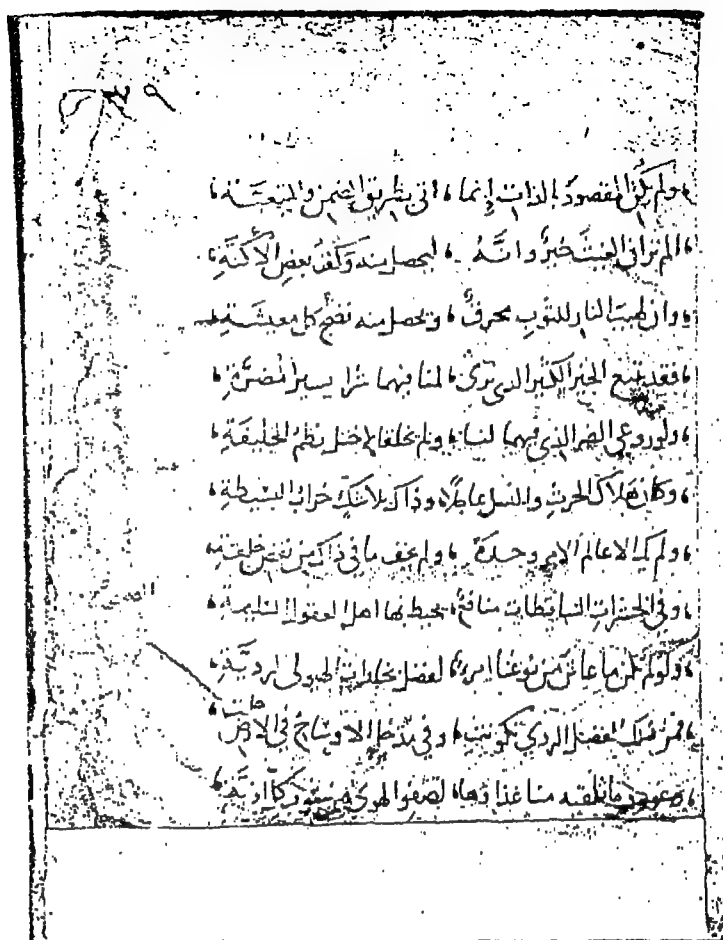 ولم يكن المقصود بالذات إنما ، اتى بطريق الضمن والتبعيّة ،
الم تر ان الغيث خير وانّه ، ليحصل منه وكف بعض الأكنّة ،
وان طبيب النار للثوب محرق ، ويحصل منه نفع كل معيشة
فقد تبع الخير الكثير الذي ترى ، لمنافهما شرا يسير
ولو روعي الضر الذي فيهما لنا ، ولم يخلقا لاختل نظم الخليقة ،
وكان هلاك الحرث والنسل عاجلا ، وذاك بلا شك خراب البسيطة ،
ولم يك الا عالم الامر وحده ، ولم يخف ما في ذاك من نقص خلقة
وفي الحشرات منافع ، يحيط بها اهل العقول السليمة ،
ولو لم تكن ما عاش من نوعنا امرء ، لفضل الهيولى
فمن ذلك الفضل الردي تكونت ، وفي مدخل الاوساخ في الارض حلت ،
ما تلقيه منا غذاؤها ، لصفو الهوى من